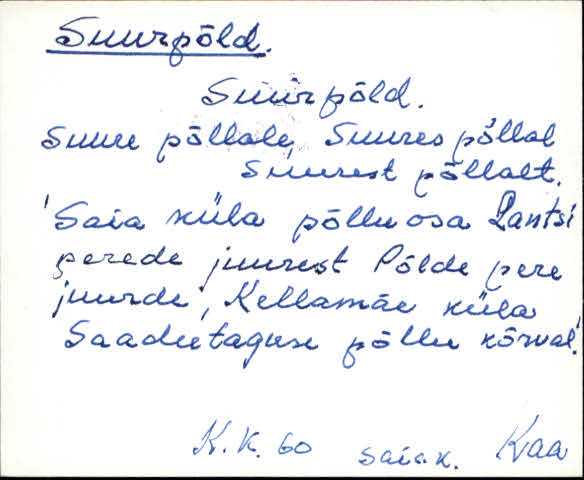 Suurpõld.
Suurpõld.
Suure põllale, Suures põllal
Suurest põllalt.
'Saia küla põllu osa Lantsi
perede juurest Põlde pere
juurde, Kellamäe küla
Saadutaguse põllu kõrval.'
K.K. 60 Saia k. Kaa